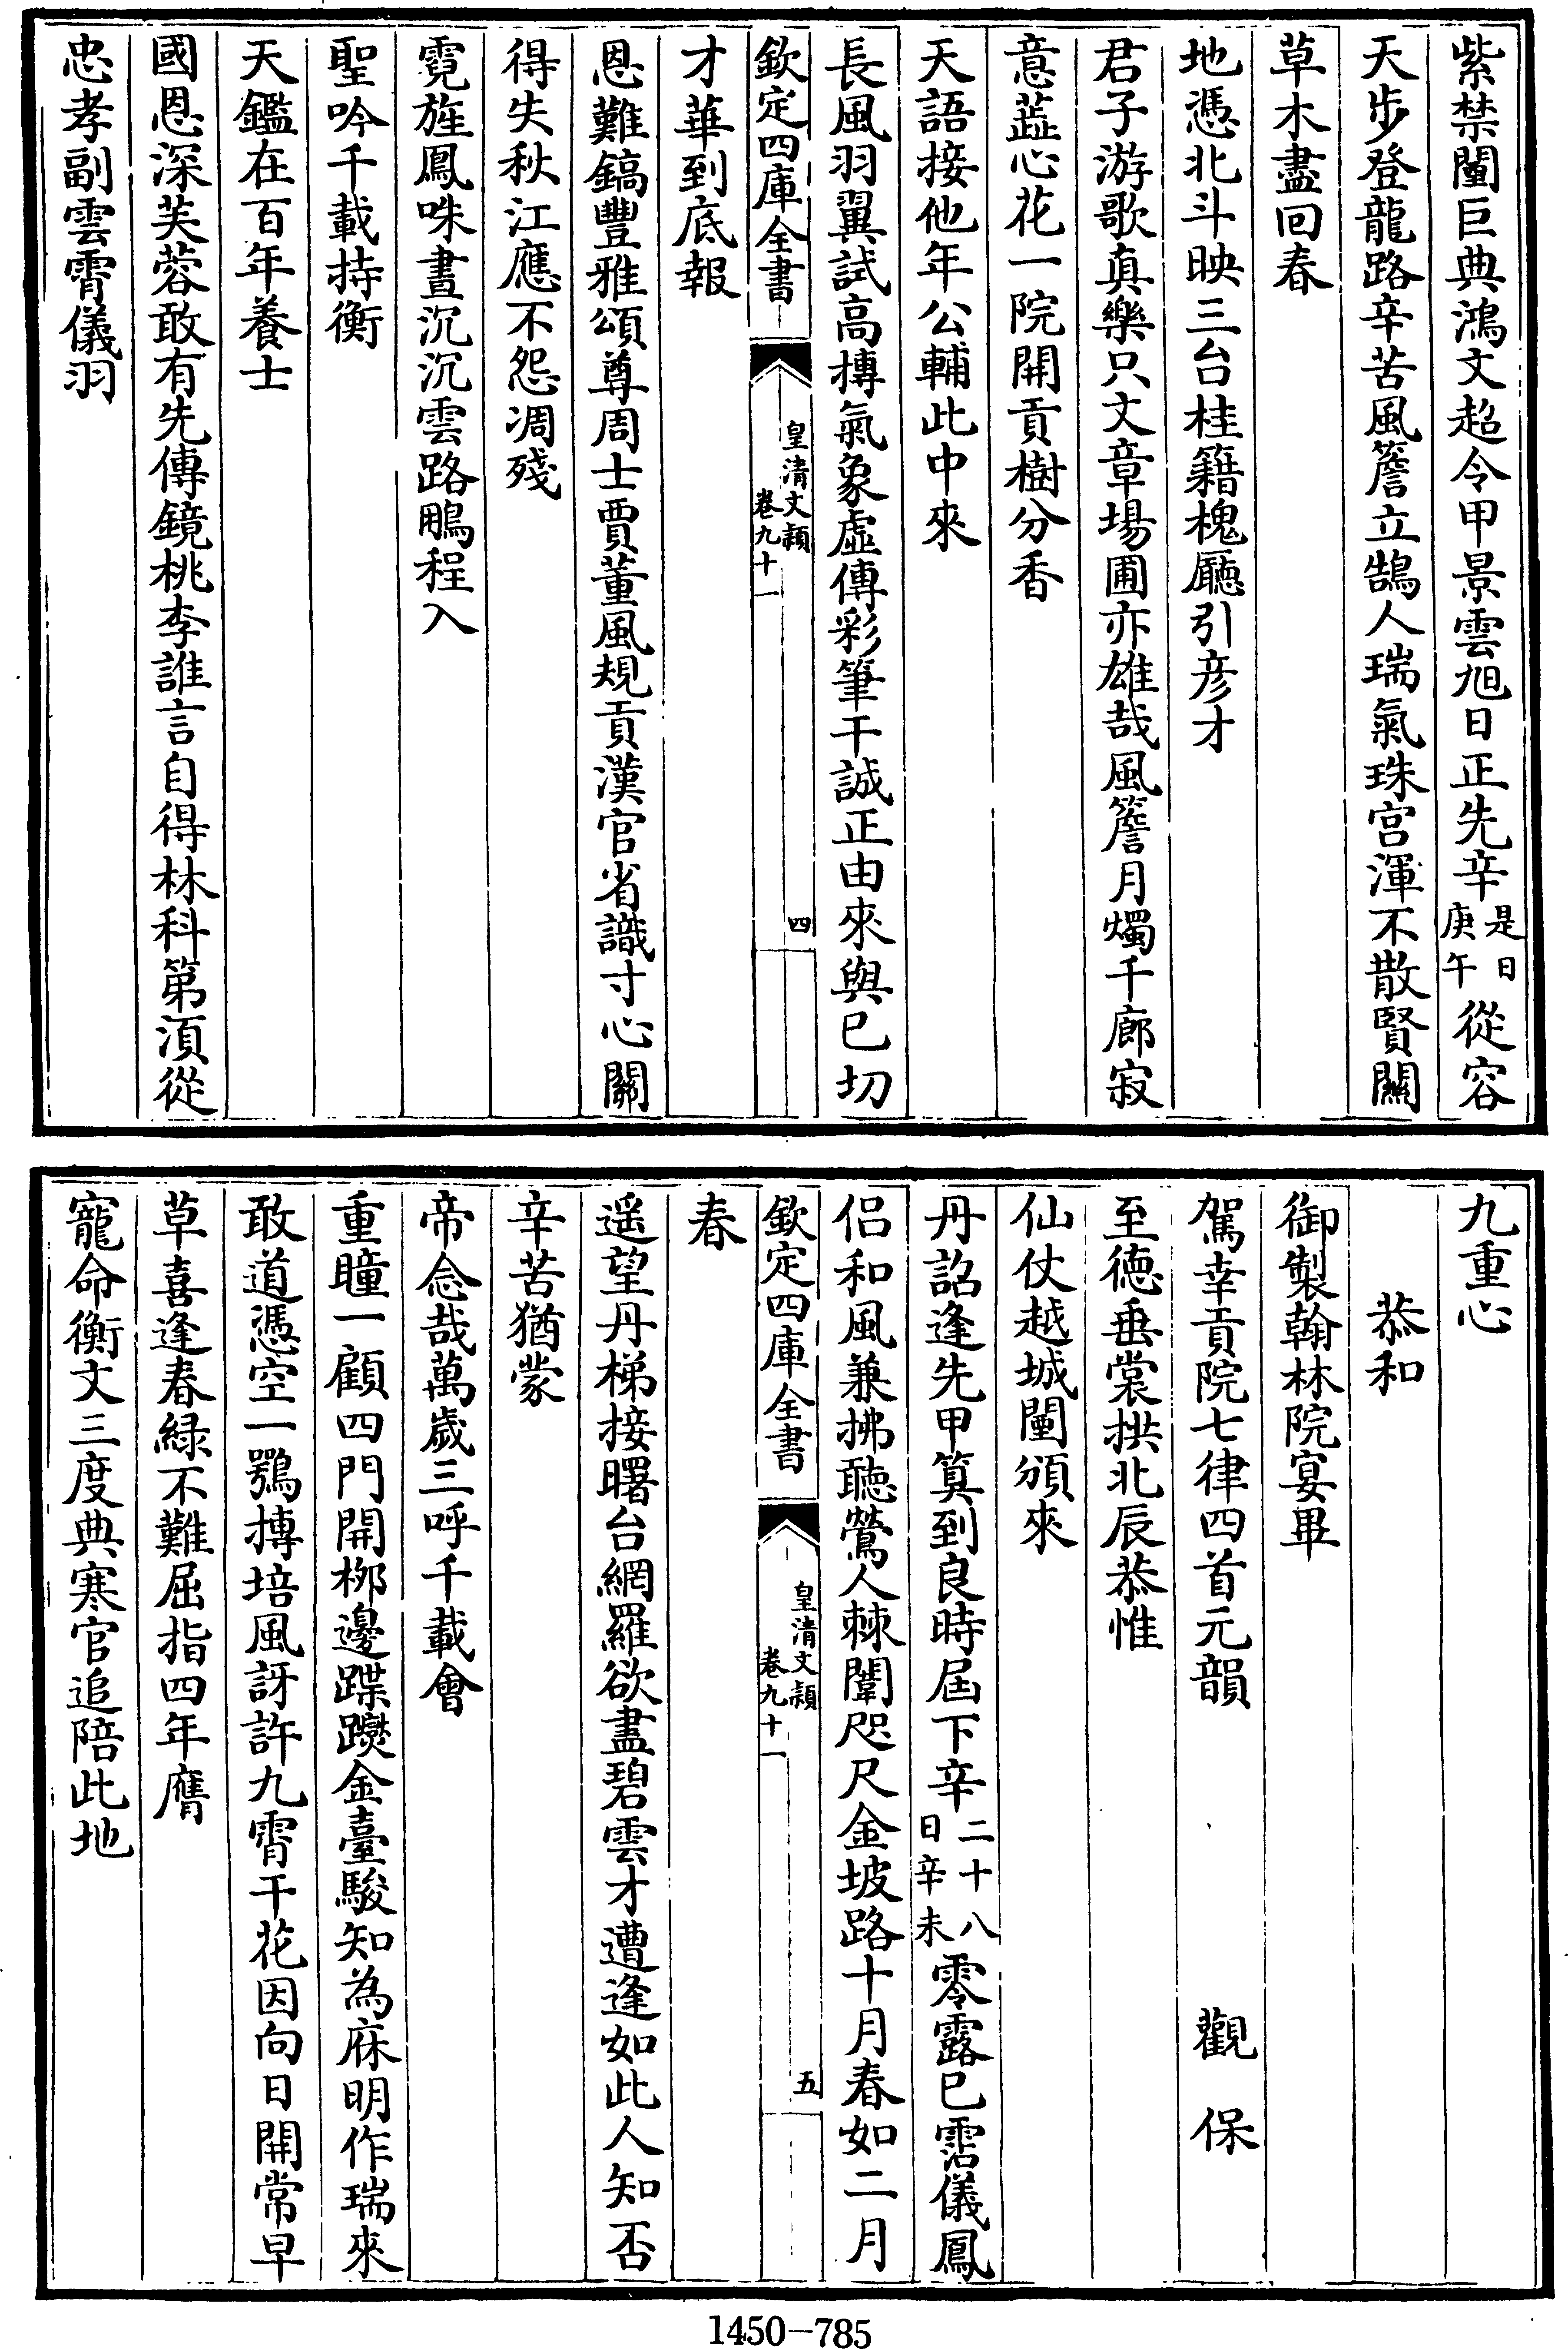 紫禁闈巨典鴻文超令甲景雲旭日正先辛是日庚午從容
天步登龍路辛苦風簷立鵠人瑞氣珠宫渾不散賢關
草木盡回春
地憑北斗映三台桂籍槐廳引彦才
君子游歌真樂只文章場圃亦雄哉風簷月燭千廊寂
意蕋心花一院開貢樹分香
天語接他年公輔此中來
長風羽翼試高摶氣象虚傳彩筆干誠正由來與已切
才華到底報
恩難鎬豐雅頌尊周士賈董風規貢漢官省識寸心關
得失秋江應不怨凋殘
霓旌鳳咮晝沉沉雲路鵬程入
聖吟千載持衡
天鑑在百年養士
國恩深芙蓉敢有先傳鏡桃李誰言自得林科第湏從
忠孝副雲霄儀羽
欽定四庫全書
皇清文穎
卷九十一
四
九重心
恭和
御製翰林院宴畢
駕幸貢院七律四首元韻
觀保
至徳垂裳拱北辰恭惟
仙仗越城闉頒來
丹詔逢先甲算到良時屆下辛二十八日辛未零露已霑儀鳳
侣和風兼拂聽鶯人棘闈咫尺金坡路十月春如二月
春
遥望丹梯接曙台網羅欲盡碧雲才遭逢如此人知否
辛苦猶蒙
帝念哉萬歲三呼千載會
重瞳一顧四門開栁邊蹀躞金臺駿知為庥明作瑞來
敢道憑空一鶚摶培風訝許九霄干花因向日開常早
草喜逢春緑不難屈指四年膺
寵命衡文三度典寒官追陪此地
欽定四庫全書
皇清文穎
卷九十一
五
1450-785